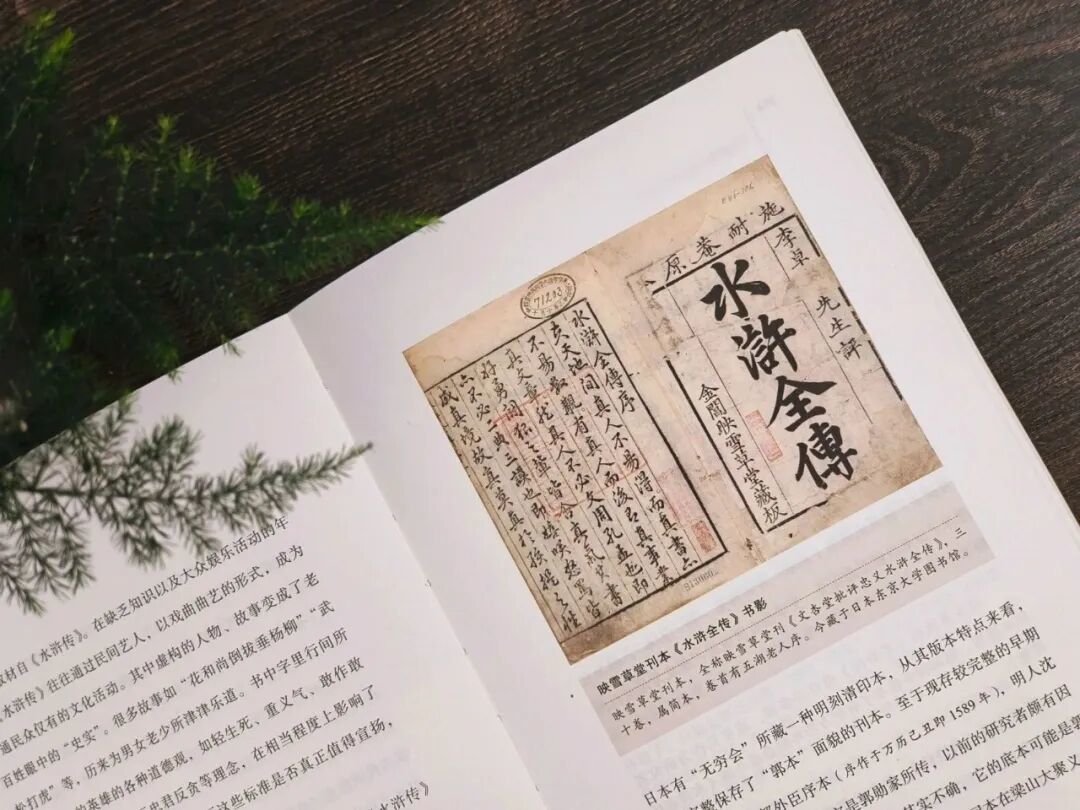 取材自《水浒传》。在缺乏知识以及大众娱乐活动的年
《水浒传》往往通过民间艺人，以戏曲曲艺的形式，成为
通民众仅有的文化活动。其中虚构的人物、故事变成了老
百姓眼中的“史实”。很多故事如“花和尚倒拔垂杨柳”“武
松打虎”等，历来为男女老少所津津乐道。书中字里行间所
的英雄的各种道德观，如轻生死、重义气、敢作敢
君反贪等理念，在相当程度上影响了
这些标准是否真正值得宣扬，
《水浒传》
施耐菴原
李卓
先生評
水滸全傳
金閶映雪草堂藏板
71203
水滸全傳序
夫天地間真人不易得而真書亦
不易數觀有真人而後有真事業
真文章
映雪草堂刊本《水浒全传》书影
映雪草堂刊本，全称映雪草堂刊《文杏堂批评忠义水浒全传》，三
十卷，属简本，卷首有五湖老人序。今藏于日本东京大学图书馆。
日本有“无穷会”所藏一种明刻清印本，从其版本特点来看，
完整保存了“郭本”面貌的刊本。至于现存较完整的早期
外臣序本（序作于万历己丑即1589年），明人沈
郭勋家所传，以前的研究者颇有因
实不确，它的底本可能是郭
在梁山大聚义